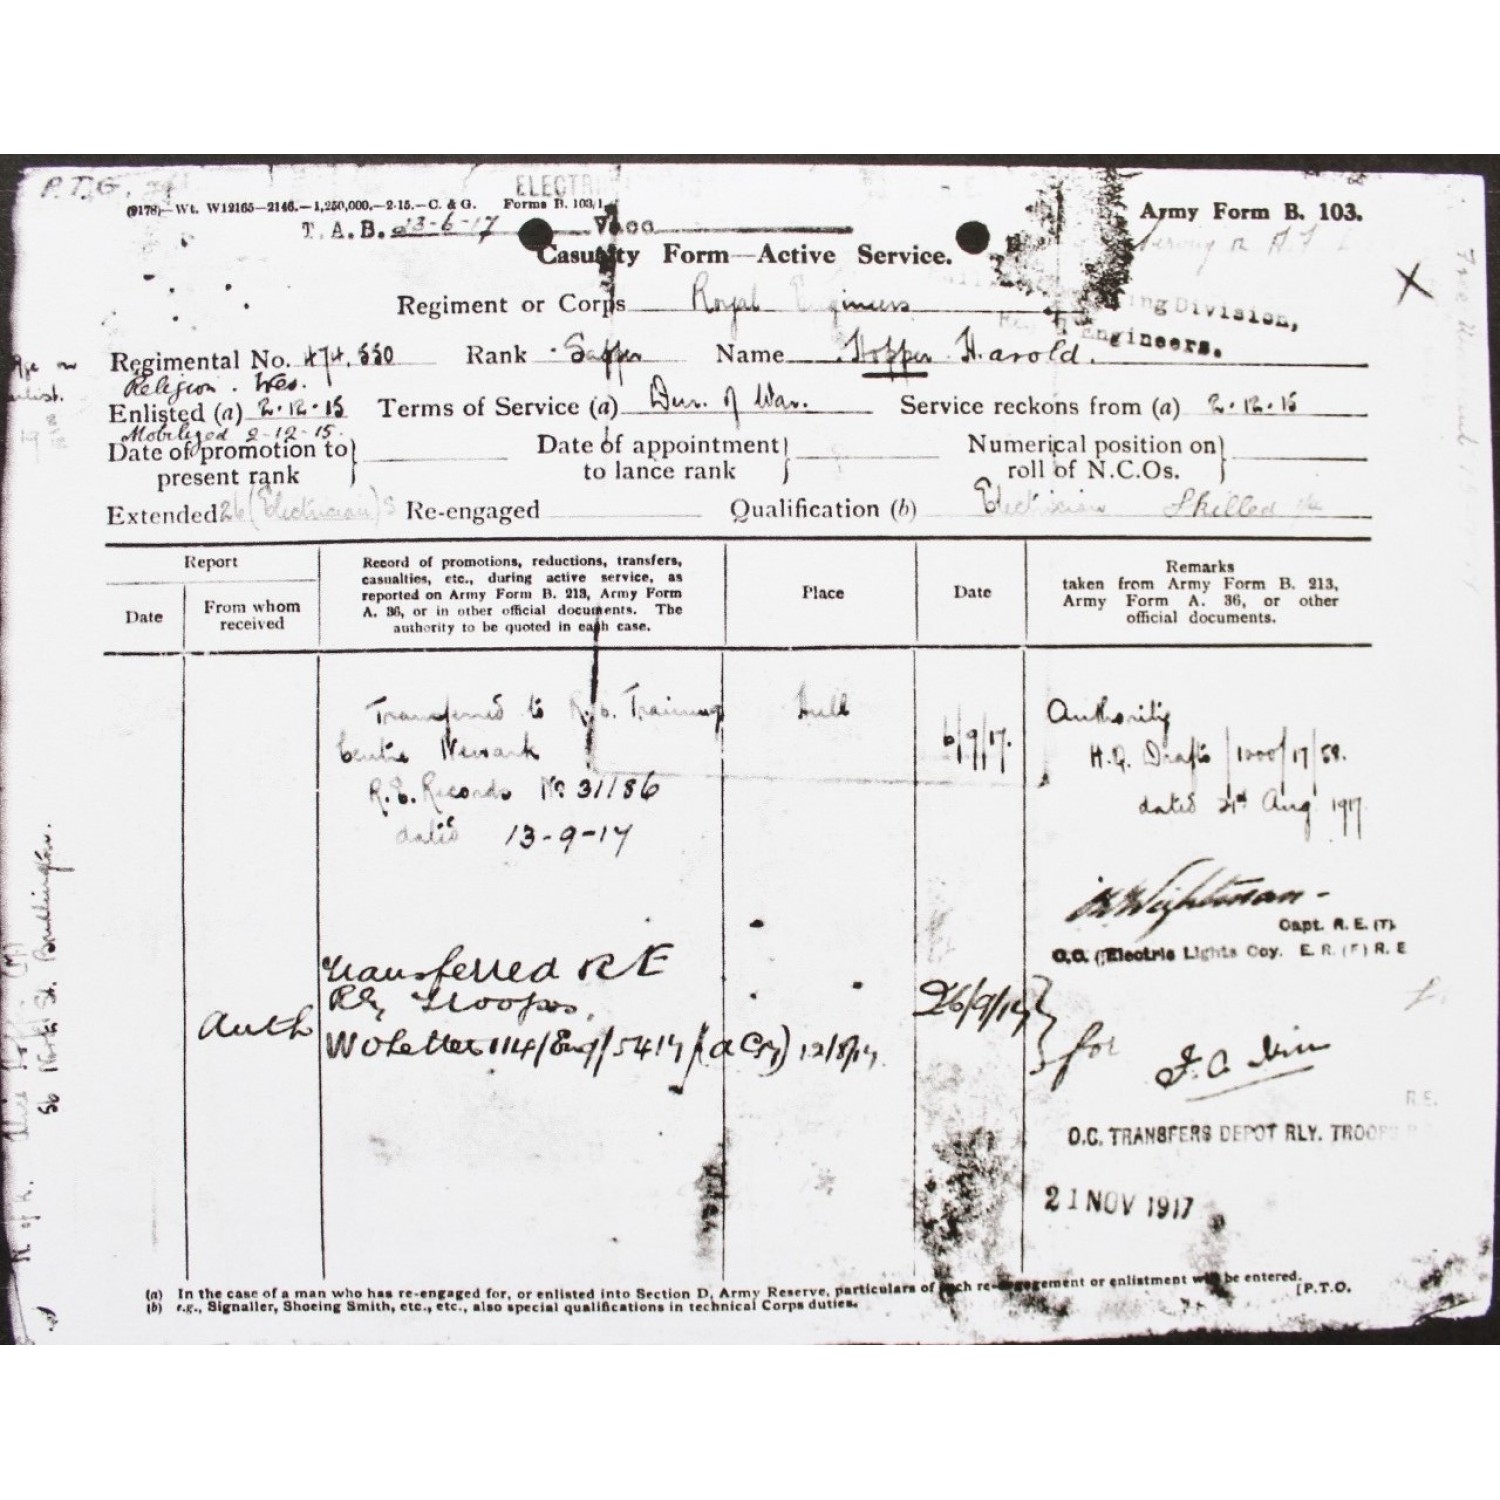 P.T.G.
ELECTRI
(9178)—Wt. W12165—2146.—1,250,000.—2-15.—C. & G. Forms B. 103/1
Army Form B. 103.
T. A. B. 23-6-17 Vacc
Casualty Form—Active Service.
Regiment or Corps Royal Engineers
ing Division,
Engineers.
Regimental No. 474,550 Rank Sapper Name Hopper Harold.
Religion. Wes.
Enlisted (a) 2.12.15 Terms of Service (a) Dur. of War. Service reckons from (a) 2.12.15
Mobilized 2-12-15.
Date of promotion to present rank Date of appointment to lance rank Numerical position on roll of N.C.Os.
Extended 26 (Electrician) S Re-engaged Qualification (b) Electrician Skilled
Report
Date
From whom received
Record of promotions, reductions, transfers,
casualties, etc., during active service, as
reported on Army Form B. 213, Army Form
A. 36, or in other official documents. The
authority to be quoted in each case.
Place
Date
Remarks
taken from Army Form B. 213,
Army Form A. 36, or other
official documents.
Transferred to R.E. Training Hull 6/9/17. Authority
Centre Newark H.Q. Drafts
R.E. Records No 31186 dated 21st Aug 1917.
dated 13-9-17
Wightman
Capt. R. E. (T).
O.C. Electric Lights Coy. E. R. (F) R. E
Transferred R E
Rly Troops.
Auth W O Letter 114/Eng/5417 12/8/17. 26/9/17 for
O.C. TRANSFERS DEPOT RLY. TROOPS
R.E.
21 NOV 1917
N. of K.
56 St. Bridlington.
(a) In the case of a man who has re-engaged for, or enlisted into Section D, Army Reserve, particulars of such re-engagement or enlistment will be entered.
(b) e.g., Signaller, Shoeing Smith, etc., etc., also special qualifications in technical Corps duties.
[P.T.O.